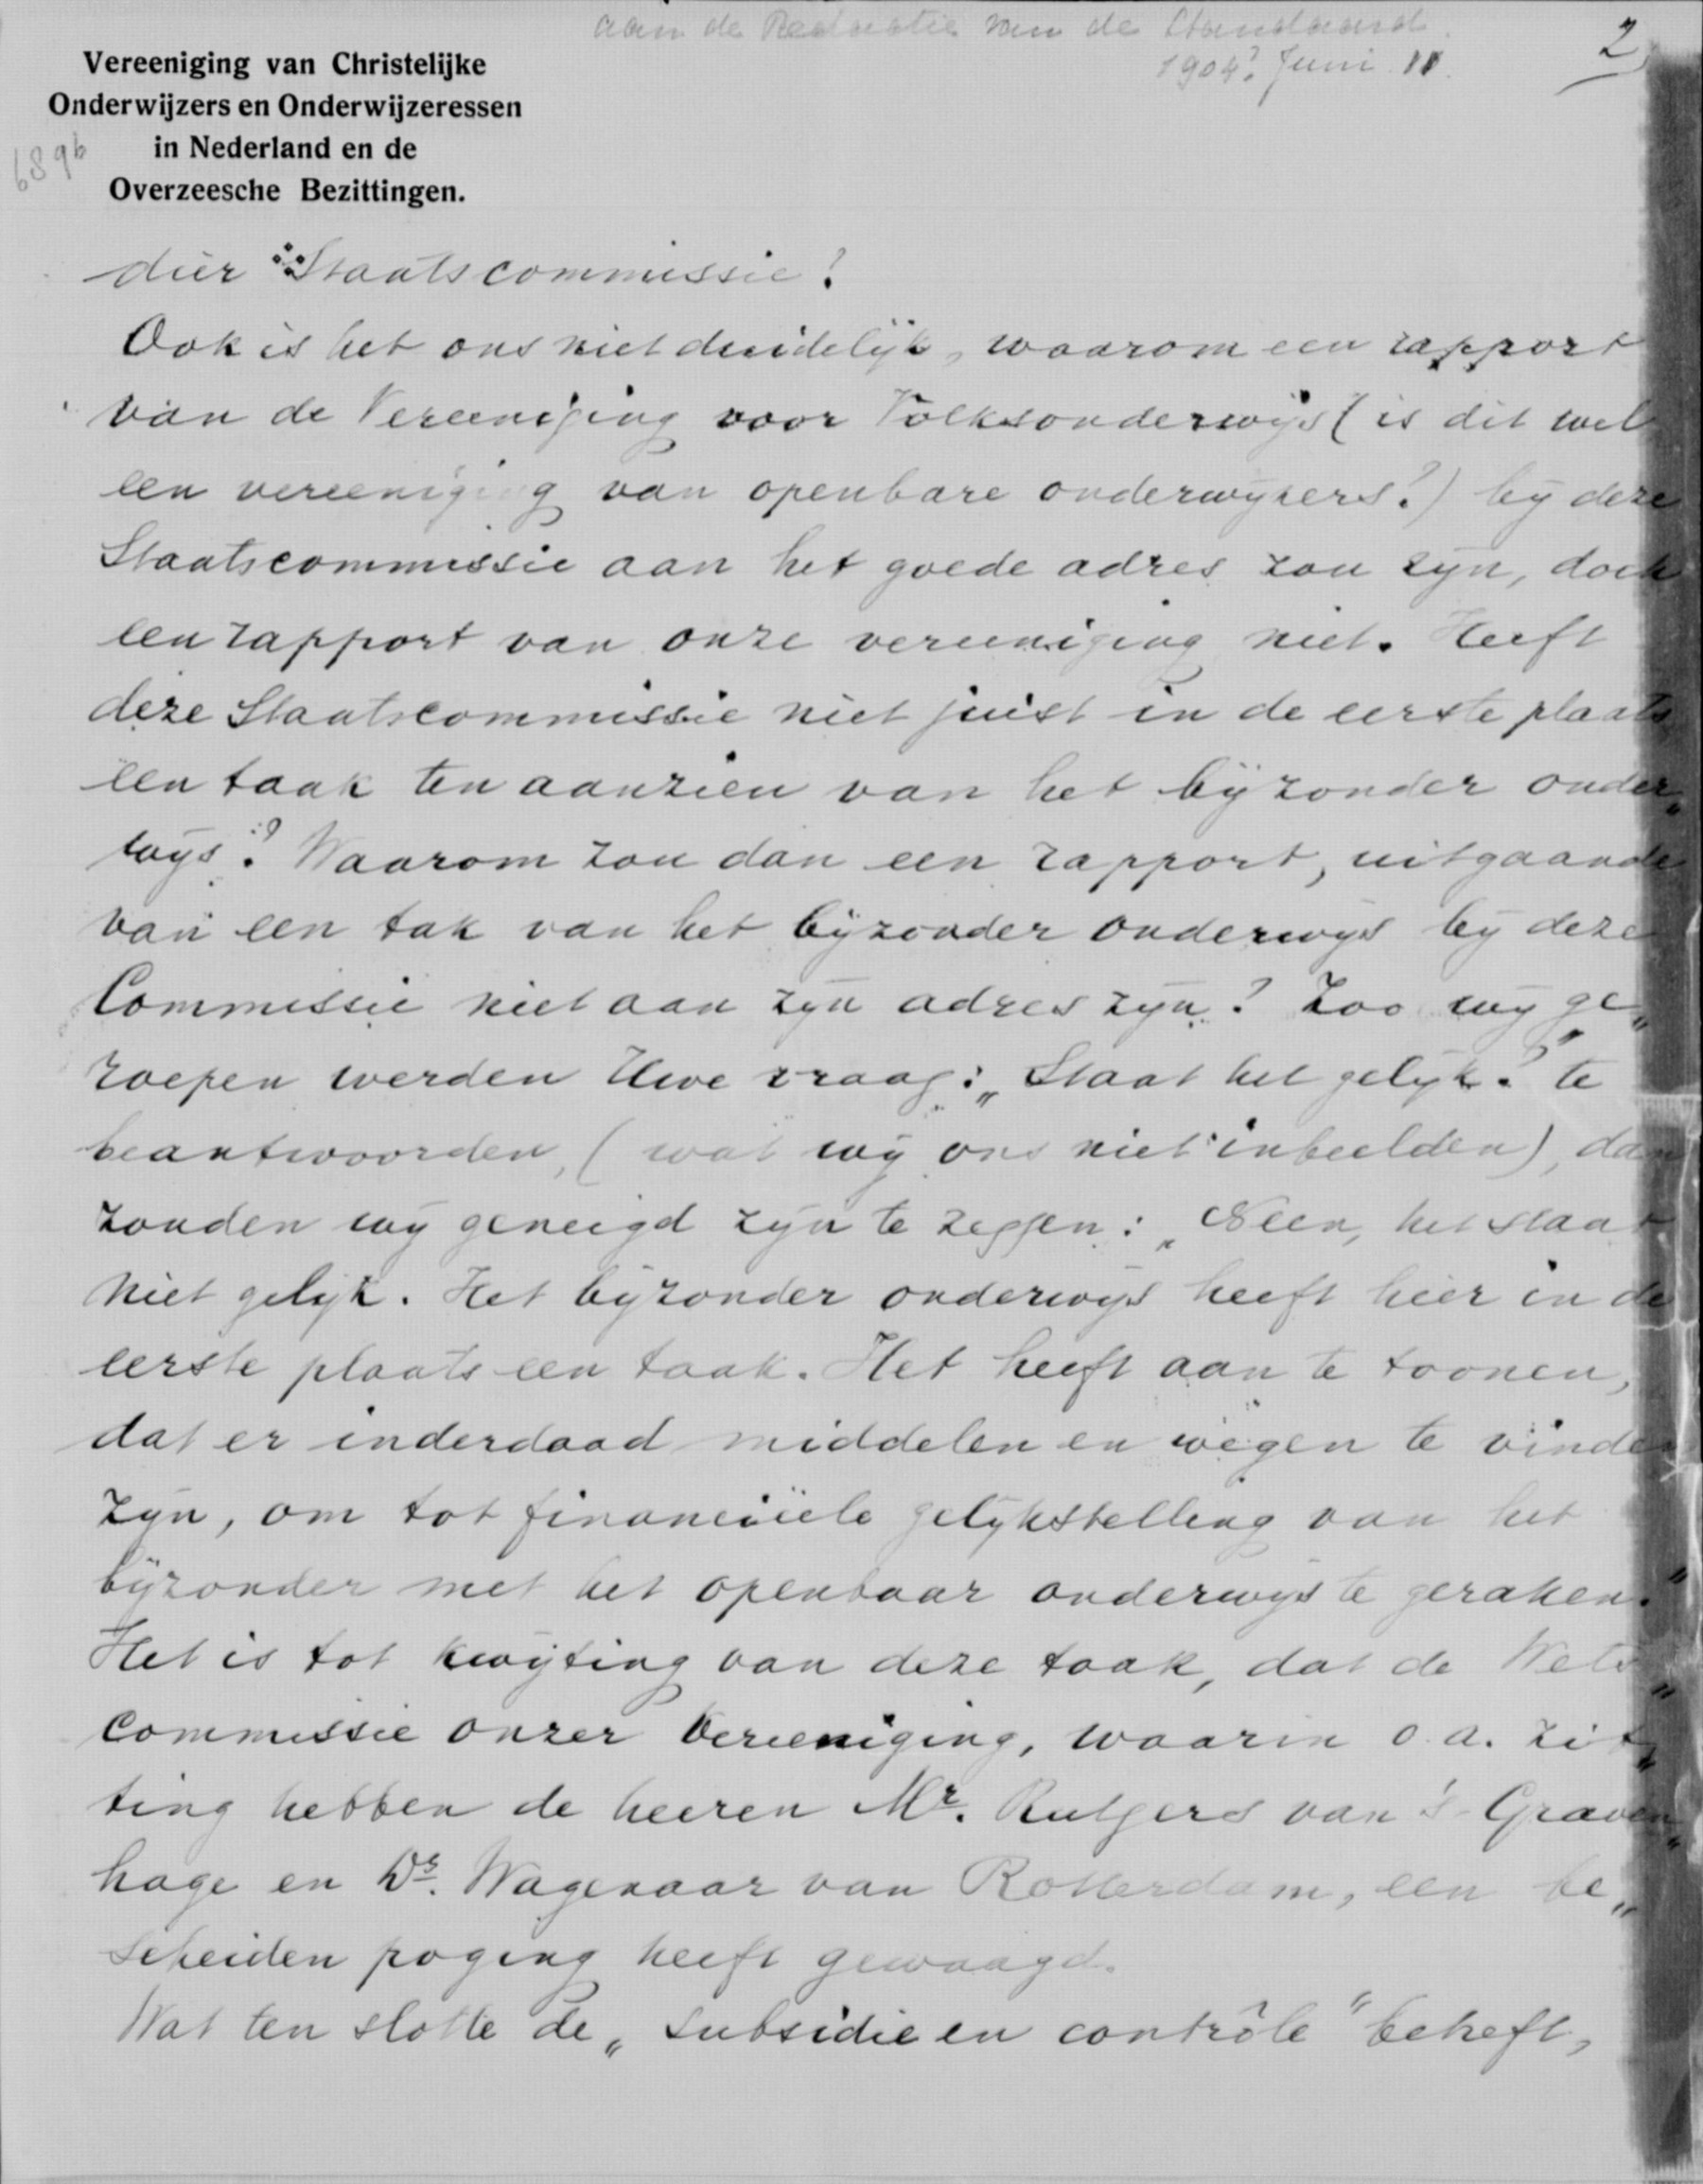 aan de Redactie van de Standaard.
1904? Juni 11.
2
Vereeniging van Christelijke
Onderwijzers en Onderwijzeressen
in Nederland en de
Overzeesche Bezittingen.
6896
dier Staatscommissie?
Ook is het ons niet duidelijk, waarom een rapport
van de Vereeniging voor Volksonderwijs (is dit wel
een vereeniging van openbare onderwijzers?) bij deze
Staatscommissie aan het goede adres zou zijn, doch
een rapport van onze vereeniging niet. Heeft
deze Staatscommissie niet juist in de eerste plaats
een taak ten aanzien van het bijzonder onder„
wijs? Waarom zou dan een rapport, uitgaande
van een tak van het bijzonder onderwijs bij deze
Commissie niet aan zijn adres zijn? Zoo wij ge„
roepen werden Uwe vraag: „Staat het gelijk?" te
beantwoorden, (wat wij ons niet inbeelden), dan
zouden wij geneigd zijn te zeggen: „Neen, het staat
niet gelijk. Het bijzonder onderwijs heeft hier in de
eerste plaats een taak. Het heeft aan te toonen,
dat er inderdaad middelen en wegen te vinden
zijn, om tot financiëele gelijkstelling van het
bijzonder met het openbaar onderwijs te geraken."
Het is tot kwijting van deze taak, dat de Wets„
commissie onzer Vereeniging, waarin o.a. zit„
ting hebben de heeren Mr. Rutgers van 's-Graven„
hage en Ds. Wagenaar van Rotterdam, een be„
scheiden poging heeft gewaagd.
Wat ten slotte de „subsidie en contrôle" betreft,